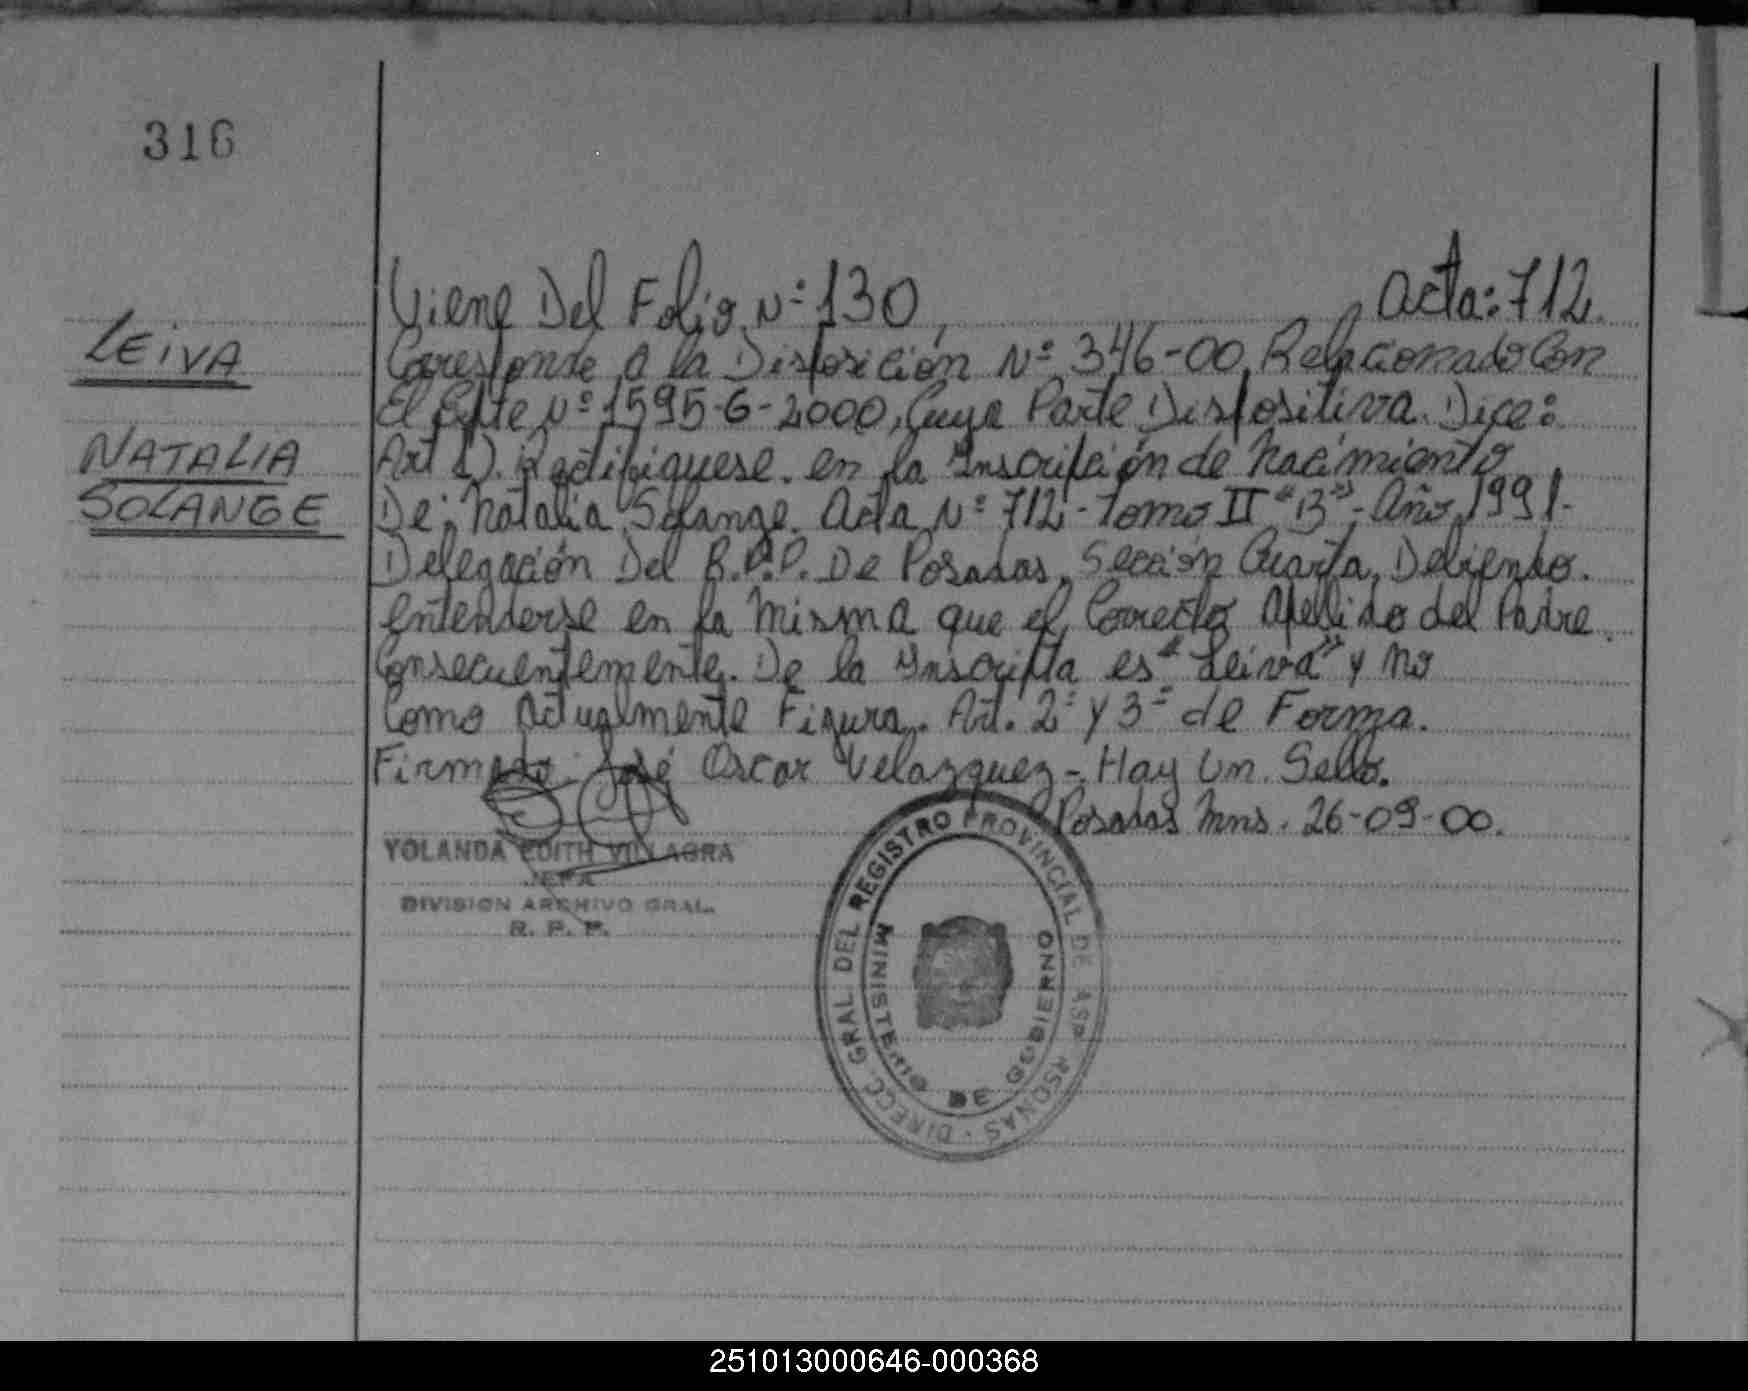 316
LEIVA
NATALIA
SOLANGE
Viene Del Folio Nº 130 Acta: 712.
Corresponde a la Disposición Nº 346-00, Relacionado Con
El Expte Nº 1595-6-2000, Cuya Parte Dispositiva. Dice:
Art 1). Rectifiquese. en la Inscripción de Nacimiento
De: Natalia Solange. Acta Nº 712 - Tomo II "B" - Año, 1991.
Delegación Del R.P.P. De Posadas, Sección Cuarta, Debiendo.
entenderse en la Misma que el Correcto Apellido del Padre.
Consecuentemente. De la Inscripta es "Leiva" y No
Como Actualmente Figura. Art. 2º y 3º de Forma.
Firmado. José Oscar Velazquez - Hay Un. Sello.
Posadas Mns. 26-09-00.
YOLANDA EDITH VILLAGRA
JEFA
DIVISION ARCHIVO GRAL.
R. P. P.
DIRECC. GRAL. DEL REGISTRO PROVINCIAL DE LAS PERSONAS
MINISTERIO DE GOBIERNO
251013000646-000368